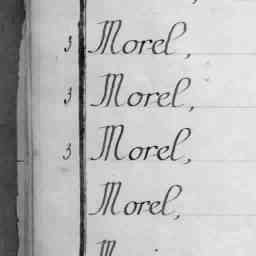 3 Morel,
3 Morel,
3 Morel,
Morel,